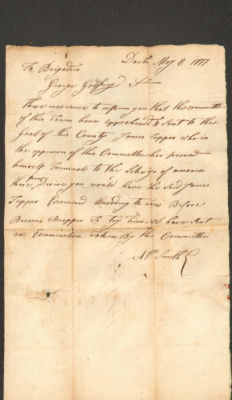 Dark May 8, 1777
To Brigadier
George Godfrey Sir
these are to inform you that this committe
of this Town have apprehended & sent to the
Goal of this County James Tupper who in
the oppinion of this Committee has proved
himself Inimical to the Librtys of america
there you would have the said James
Tupper Examined According to Law Before
to try him we have sent
an Examination Taken By the Committee
Smith